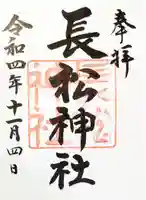 奉拝
長松神社
令和四年十一月四日